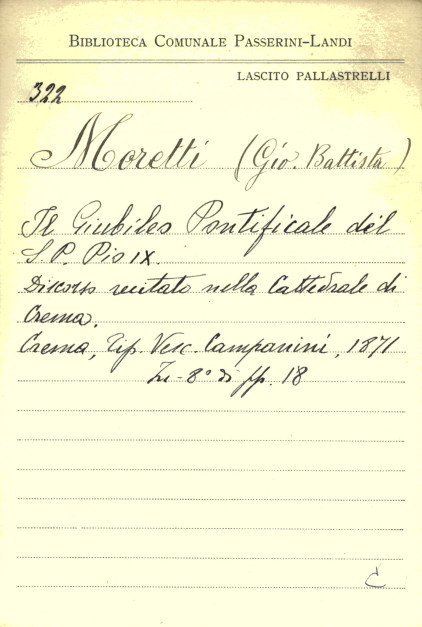 BIBLIOTECA COMUNALE PASSERINI-LANDI
LASCITO PALLASTRELLI
322
Moretti (Gio. Battista)
Il Giubileo Pontificale del
S.P. Pio IX.
Discorso recitato nella Cattedrale di
Crema.
Crema, Tip. Vesc. Campanini, 1871
In-8° di pp. 18
C